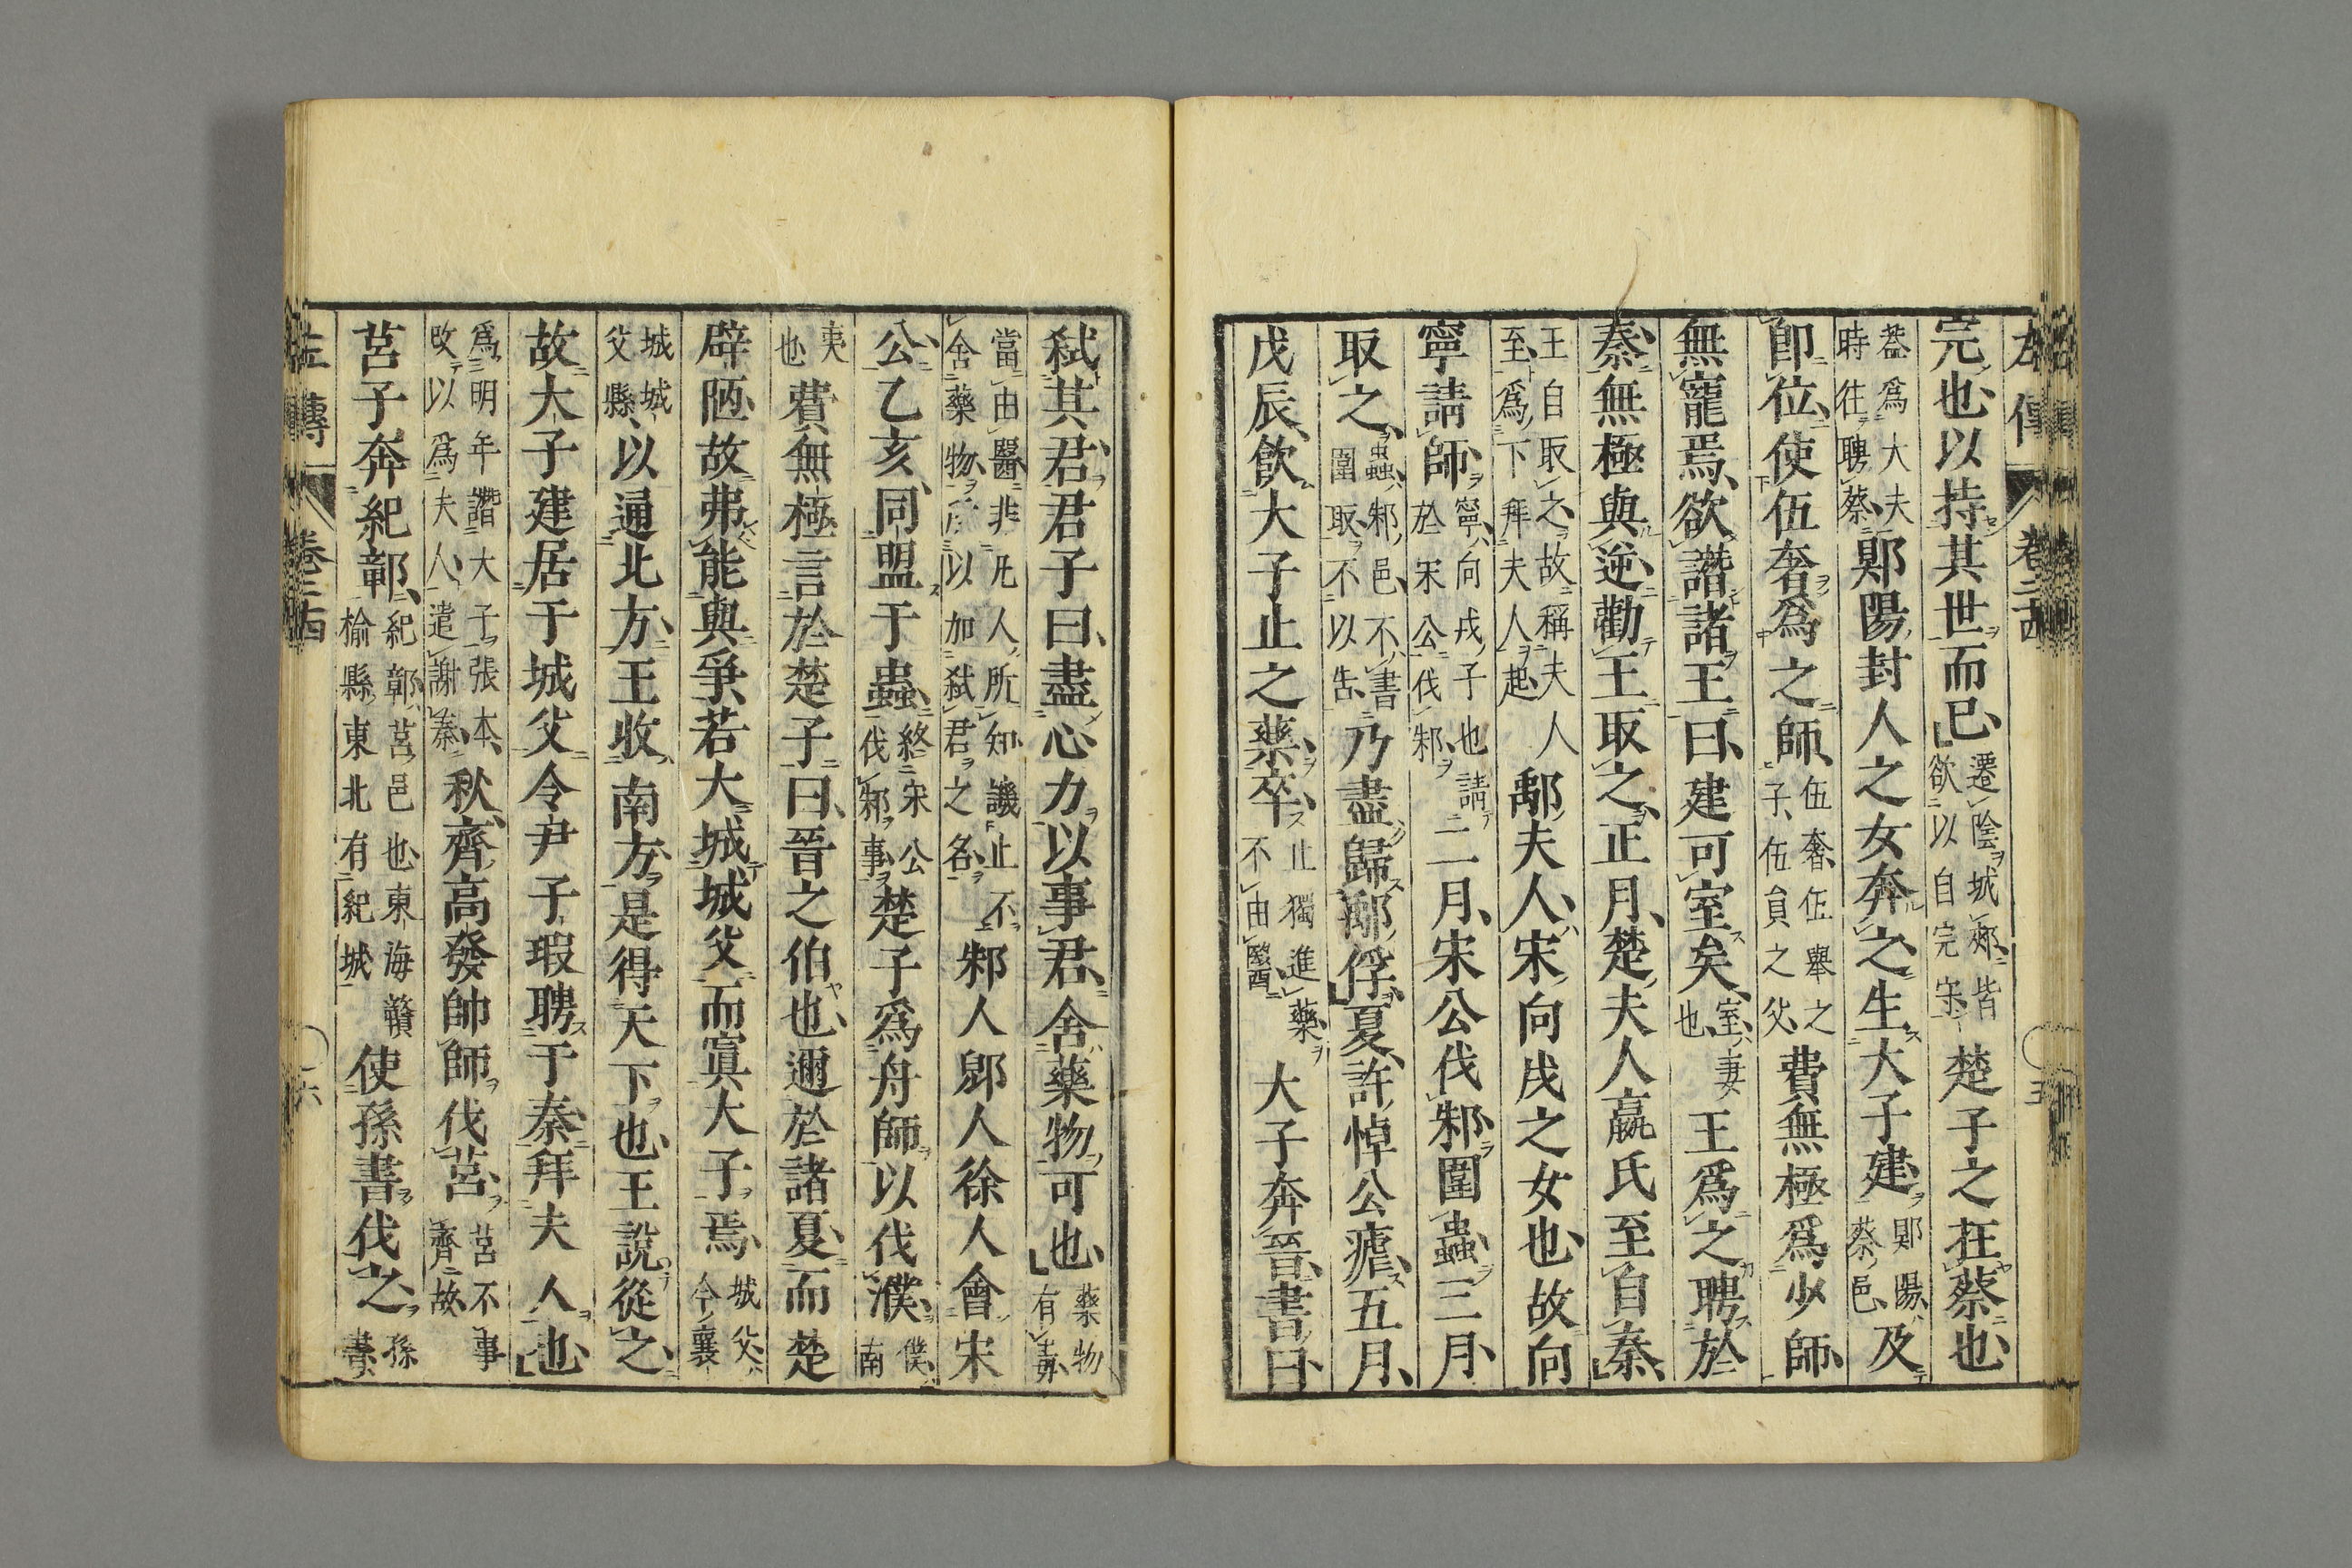 左傳 卷二十四 五
完也以持其世而已遷陰城郟皆欲以自完守楚子之在蔡也
蓋爲大夫時往聘蔡鄖陽封人之女奔之生大子建鄖陽蔡邑及
卽位使伍奢爲之師伍奢伍舉之子伍員之父費無極爲少師
無寵焉欲譖諸王曰建可室矣室妻也王爲之聘於
秦無極與逆勸王取之正月楚夫人嬴氏至自秦
王自取之故稱夫人至爲下拜夫人起鄅夫人宋向戌之女也故向
寧請師寧向戌子也請於宋公伐邾二月宋公伐邾圍蟲三月
取之蟲邾邑不書圍取不以告乃盡歸鄅俘夏許悼公瘧五月
戊辰飲大子止之藥卒止獨進藥不由醫大子奔晉書曰
弑其君君子曰盡心力以事君舍藥物可也藥物有毒
當由醫非凡人所知譏止不舍藥物以加弑君之名邾人郳人徐人會宋
公乙亥同盟于蟲終宋公伐邾事楚子爲舟師以伐濮濮南
夷也費無極言於楚子曰晉之伯也邇於諸夏而楚
辟陋故弗能與爭若大城城父而寘大子焉城父今襄
城城父縣以通北方王收南方是得天下也王說從之
故大子建居于城父令尹子瑕聘于秦拜夫人也
爲明年譖大子張本改以爲夫人遣謝秦秋齊高發帥師伐莒莒不事齊故
莒子奔紀鄣紀鄣莒邑也東海贛榆縣東北有紀城使孫書伐之孫書
左傳 卷二十四 六